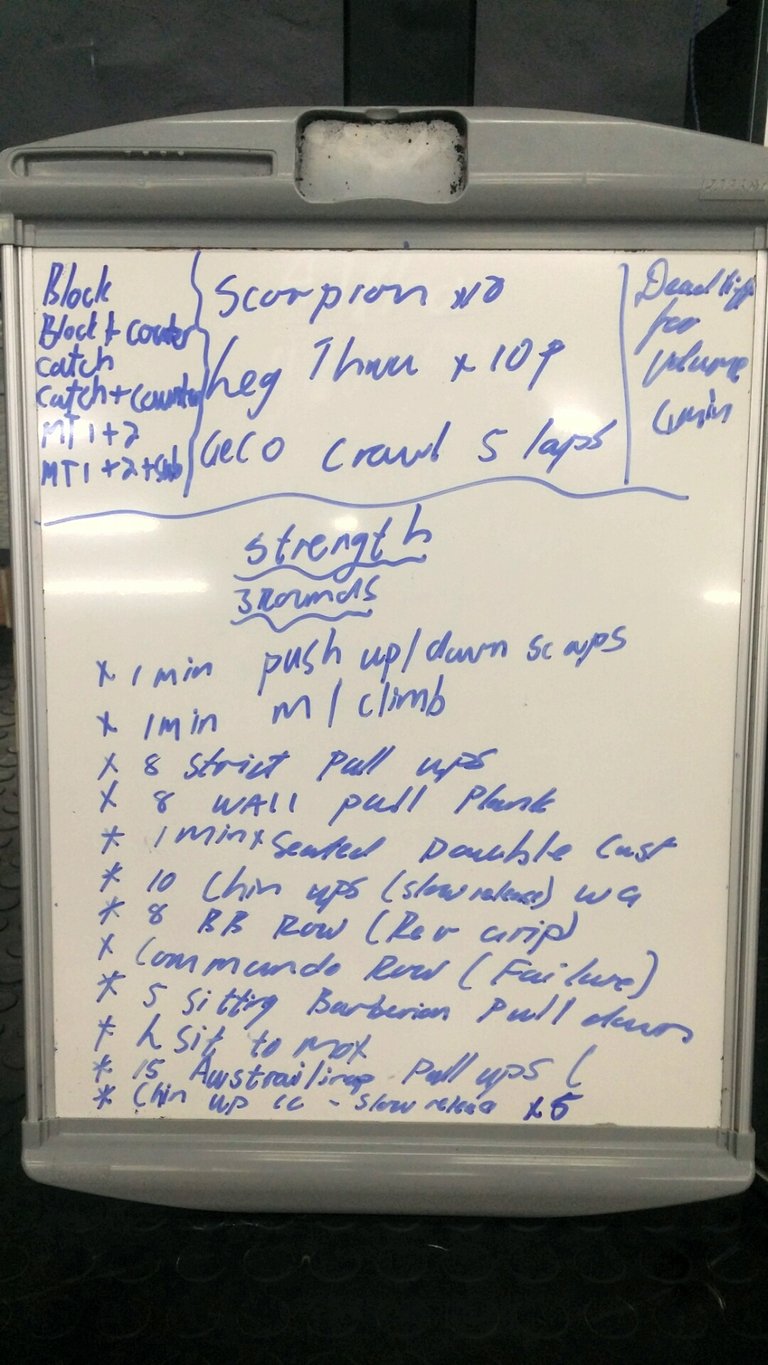 Block
Block + counter
catch
catch + counter
MT 1 + 2
MT 1 + 2 + sub
Scorpion x
Leg Thru x 10
Geco crawl 5 laps
for
volume
min
Strength
3 Rounds
x 1 min push up/down scaps
x 1 min m/climb
x 8 Strict Pull ups
x 8 WAll pull Plank
* 1 min x Seated Double Cast
* 10 Chin ups (slow release) wa
* 8 BB Row (Rev Grip)
x Commando Row (Failure)
* 5 Sitting Barberian Pull downs
* L Sit to Max
* 15 Pull ups (
* Chin up cc - slow release x 5